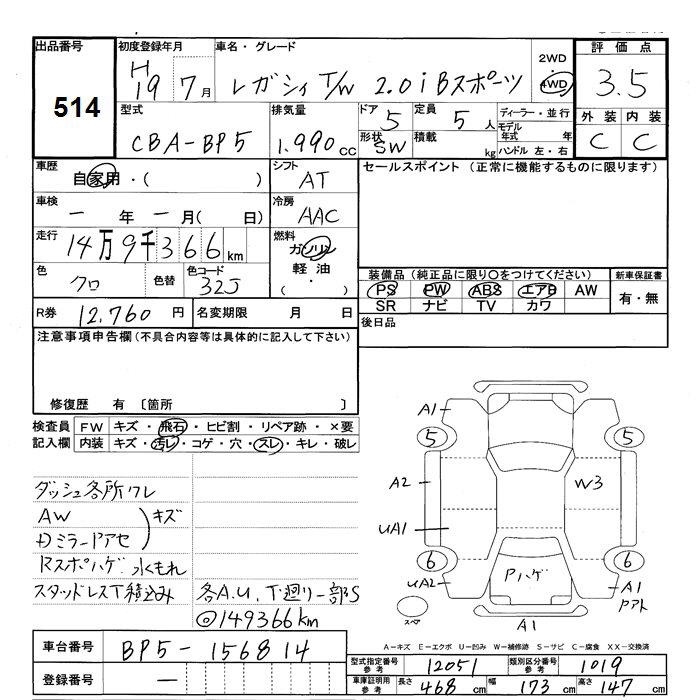 出品番号
514
初度登録年月
H19 7月
車名・グレード
レガシィ T/W 2.0i Bスポーツ
2WD・
4WD
評価点
3.5
外装 内装
C C
型式
CBA-BP5
排気量
1.990 cc
ドア
5
形状
SW
定員
5 人
積載
kg
ディーラー・並行
モデル年式 年
ハンドル 左・右
車歴
自家用・( )
シフト
AT
セールスポイント (正常に機能するものに限ります)
車検
ー年ー月( 日)
冷房
AAC
走行
14万9千366km
燃料
ガソリン
軽油
( ・ )
色
クロ
色替
色コード
32J
装備品 (純正品に限り○をつけてください)
新車保証書
PS PW ABS エアB AW
有・無
SR ナビ TV カワ
R券 12,760 円
名変期限 月 日
後日品
注意事項申告欄(不具合内容等は具体的に記入して下さい)
修復歴 有 〔箇所 〕
検査員記入欄
FW キズ・飛石・ヒビ割・リペア跡・×要
内装 キズ・汚レ・コゲ・穴・スレ・キレ・破レ
ダッシュ各所ワレ
AW
Dミラー ドアセ
キズ
Rスポハゲ 水もれ
スタッドレスT積込み
各A.U、T廻リ一部S
◎149366km
A1
5
5
A2
W3
UA1
6
6
UA2
Pハゲ
A1
スペア
A1
A=キズ E=エクボ U=凹み W=補修跡 S=サビ C=腐食 XX=交換済
車台番号
BP5-156814
登録番号
ー
型式指定番号 参考
12051
類別区分番号 参考
1019
車庫証明用 参考
長さ 468 cm 幅 173 cm 高さ 147 cm